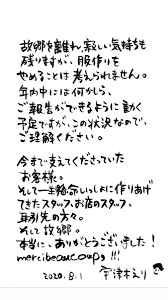 故郷を離れ、寂しい気持ちも
残りますが、服作りを
やめることは考えられません。
年内中には何かしら、
ご報告ができるように動く
予定ですが、この状況なので、
ご理解ください。
今まで支えてくださっていた
お客様。
そして一生懸命いっしょに作りあげ
てきたスタッフ、お店のスタッフ、
お取引先の方々。
そして故郷。
本当に、ありがとうございました!
mercibeaucoup,!!!
2020.8.1 宇津木えり